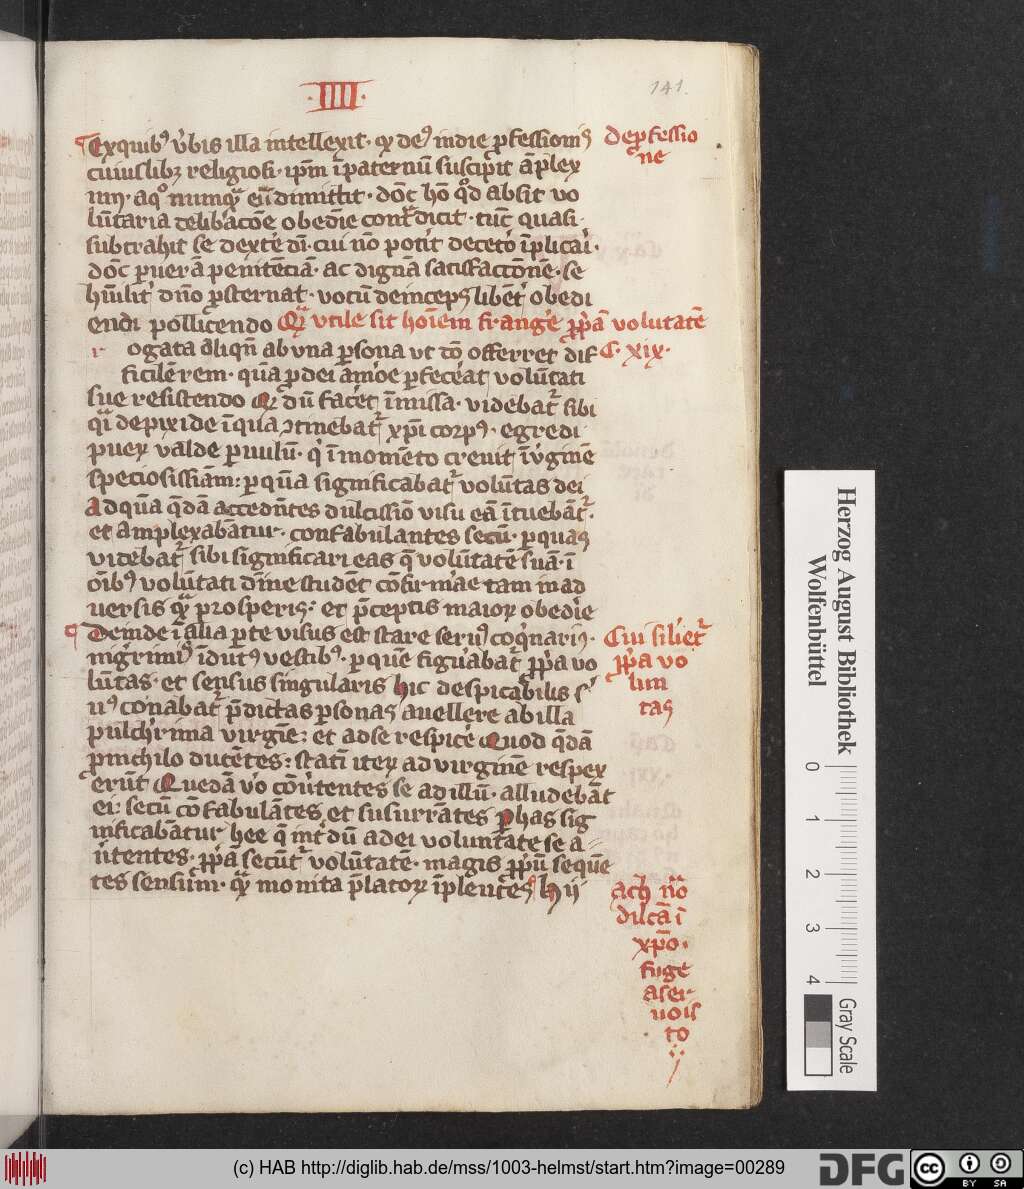 ·IIII·
141.
Exquibꝰ v̄bis illa intellexit· qꝫ deꝰ indie ꝓfessionis
de ꝓfessio
ne
cuiuslibꝫ religiosi· ip̄m ī paternū suscipit āplex
dimittit· dōc hō qd̄ absit vo
lūtaria delibacōe obediē contͣdicit· tūc quasi·
subtrahit se dexteͥ dī· cui nō potit deceto īplicai·
dōc ꝑ uerā penitēciā· ac dignā satisfactōnē· se
hūilitͥ dn̄o ꝓsternat· votū deinceps libēt obedi
endi pollicendo Qͣ vtile sit hoīem frangeͥ ꝓpͥā volūtatē
r ogata aliqn̄ ab vna ꝑsona vt dō offerret dif
C· xix·
ficilē rem· quā ꝑ dei amōe ꝑfeceat volūtati
sue resistendo Qͥ dū faceͥt ī missa· videbatͬ sibi
qͣ de pixide ī qua ꝯtinebatͬ xp̄i corpꝰ· egredi
pueꝝ valde ꝑuulū· qͥ ī momēto creuit ī vͥginē
speciosissiam: ꝑ quā significabatͬ volūtas dei
Ad quā qͣdā accedētes dulcissiō visu eā ītuebātͬ·
et amplexabātur· confabulantes secū· ꝑ quas
videbatͬ sibi significari eas qͥ volūtatē suā· ī
oībꝰ volūtati dīne studēt cōfirmae tam in ad
uersis qͣ prosperis: et p̄ceptis maioꝝ obedie
Deinde ī alia ꝑte visus est stare seruꝰ coqͥnariꝰ·
Cui siliet
nigrimͥ īdutꝰ vestibꝰ· ꝑ quē figuabatͬ ꝓpͥa vo
ꝓpͥa vo
lūtas· et sensus singularis hic despicabilis sͥ
lun
uꝰ conabatͬ p̄dictas ꝑsonas auellere ab illa
tas
pulchrima virgīe: et ad se respiceͥ Quod qͣdā
ꝓ nichilo ducētes: statī iteꝝ ad virginē respex
erūt Quedā vͦo cōuͥtentes se ad illū· alludebāt
ei: secū cōfabulātes et susurrātes Per has sig
nificabātur hee qͥ mͥt dū a dei voluntate se a=
uͥtentes· ꝓpͥā secūtͬ volūtatē· magis ꝓpͥū sequē
tes sensum· qͣ monita p̄latoꝝ īplentes h ii
ach nͣo
dilcā ī
xp̄o·
fuge
a ser
uo is
to
Herzog August Bibliothek
Wolfenbüttel
0 1 2 3 4
Gray Scale
(c) HAB http://diglib.hab.de/mss/1003-helmst/start.htm?image=00289
DFG
cc BY SA